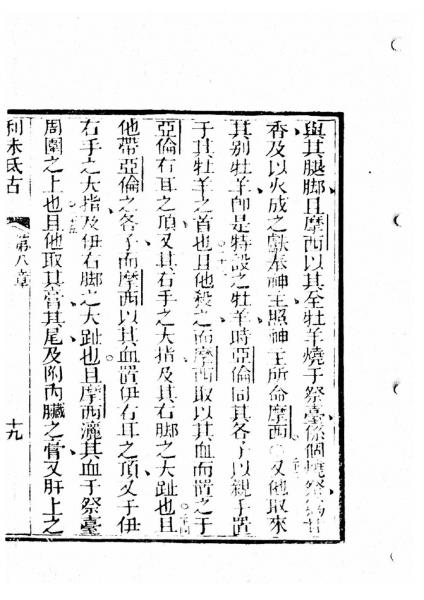 與其腿脚且摩西以其全牡羊燒于祭臺係個燒祭為甘
香及以火成之獻奉神主照神主所命摩西○又他取來
其别牡羊即是特設之牡羊時亞倫同其各子以親手置
于其牡羊之首也且他殺之而摩西取以其血而置之于
亞倫右耳之頂又其右手之大指及其右脚之大趾也且
他帶亞倫之各子而摩西以其血置伊右耳之頂又于伊
右手之大指及伊右脚之大趾也且摩西灑其血于祭臺
周圍之上也且他取其膏其尾及附內臟之膏又肝上之
利未氏古 第八章 十九